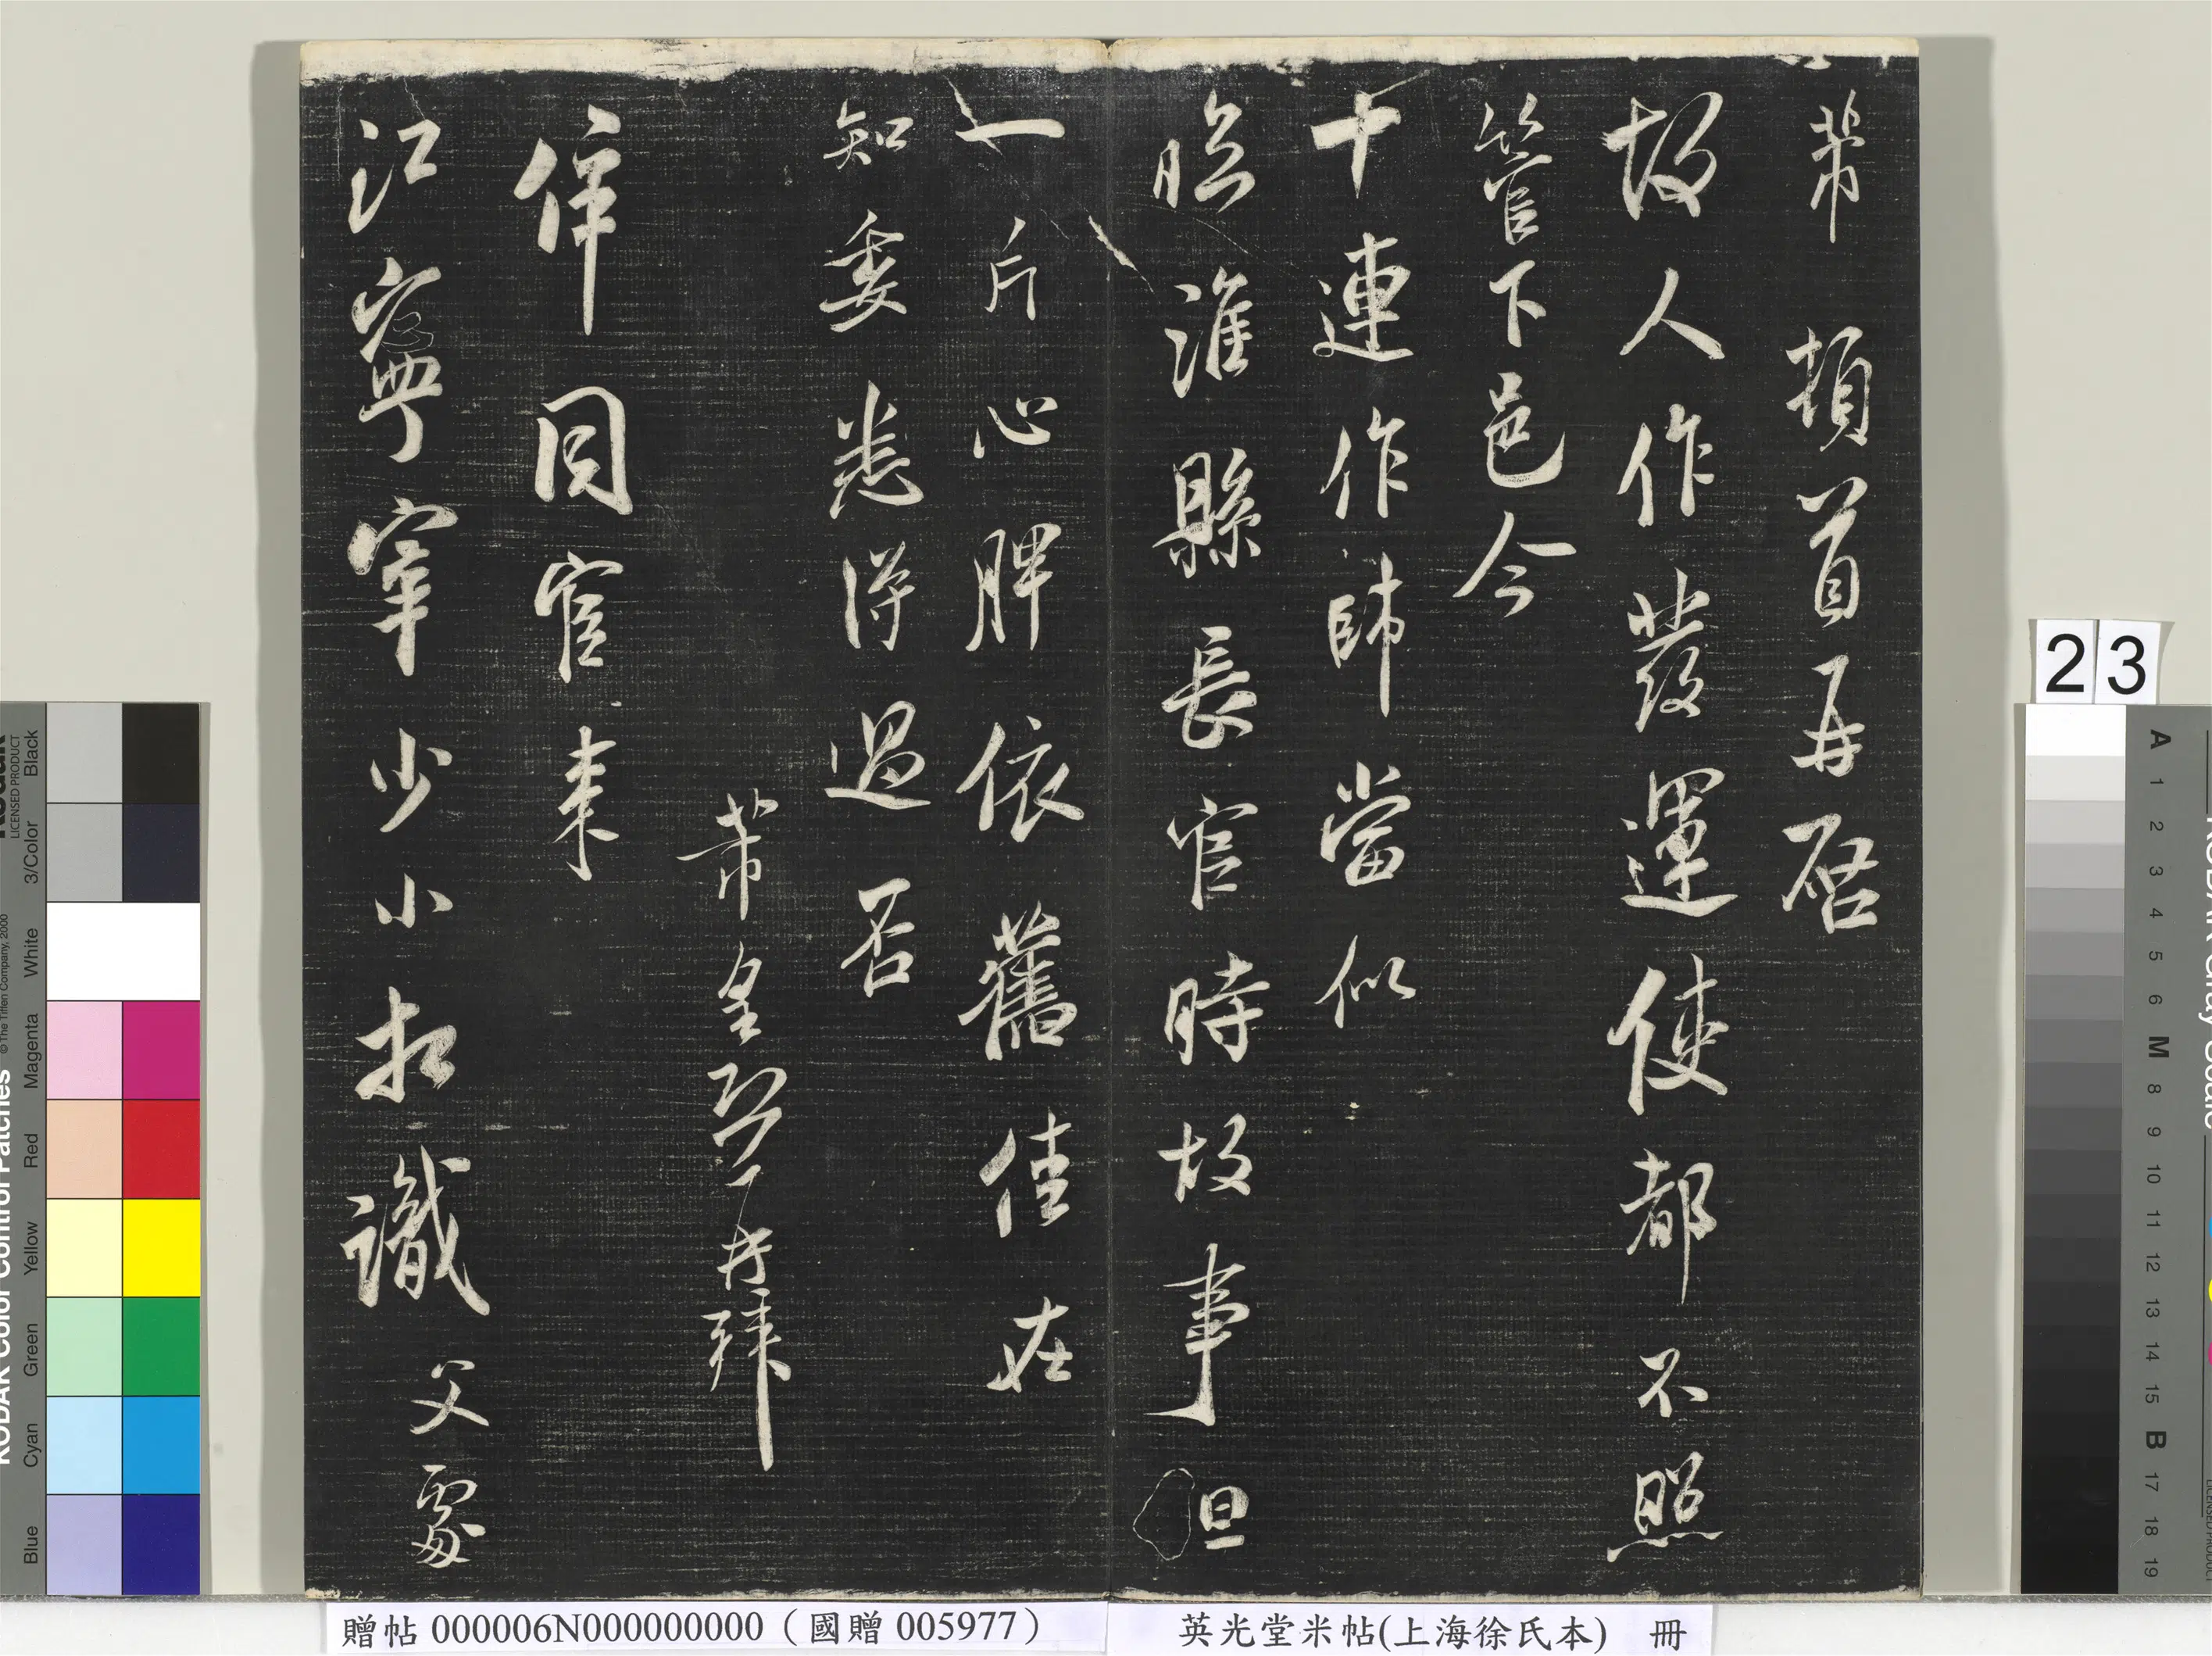 芾頓首再啓
故人作發運使都不照
管下邑令
十連作帥當似
臨淮縣長官時故事但
一斤心脾依舊佳在
知委悉得過否
芾皇恐頓首拜
倅同官來
江寧宰少小相識父處
23
贈帖 000006N000000000（國贈 005977）
英光堂米帖(上海徐氏本) 冊
Black
3/Color
White
Magenta
Red
Yellow
Green
Cyan
Blue
KODAK Color Control Patches
© The Tiffen Company, 2000
LICENSED PRODUCT
A 1 2 3 4 5 6 M 8 9 10 11 12 13 14 15 B 17 18 19